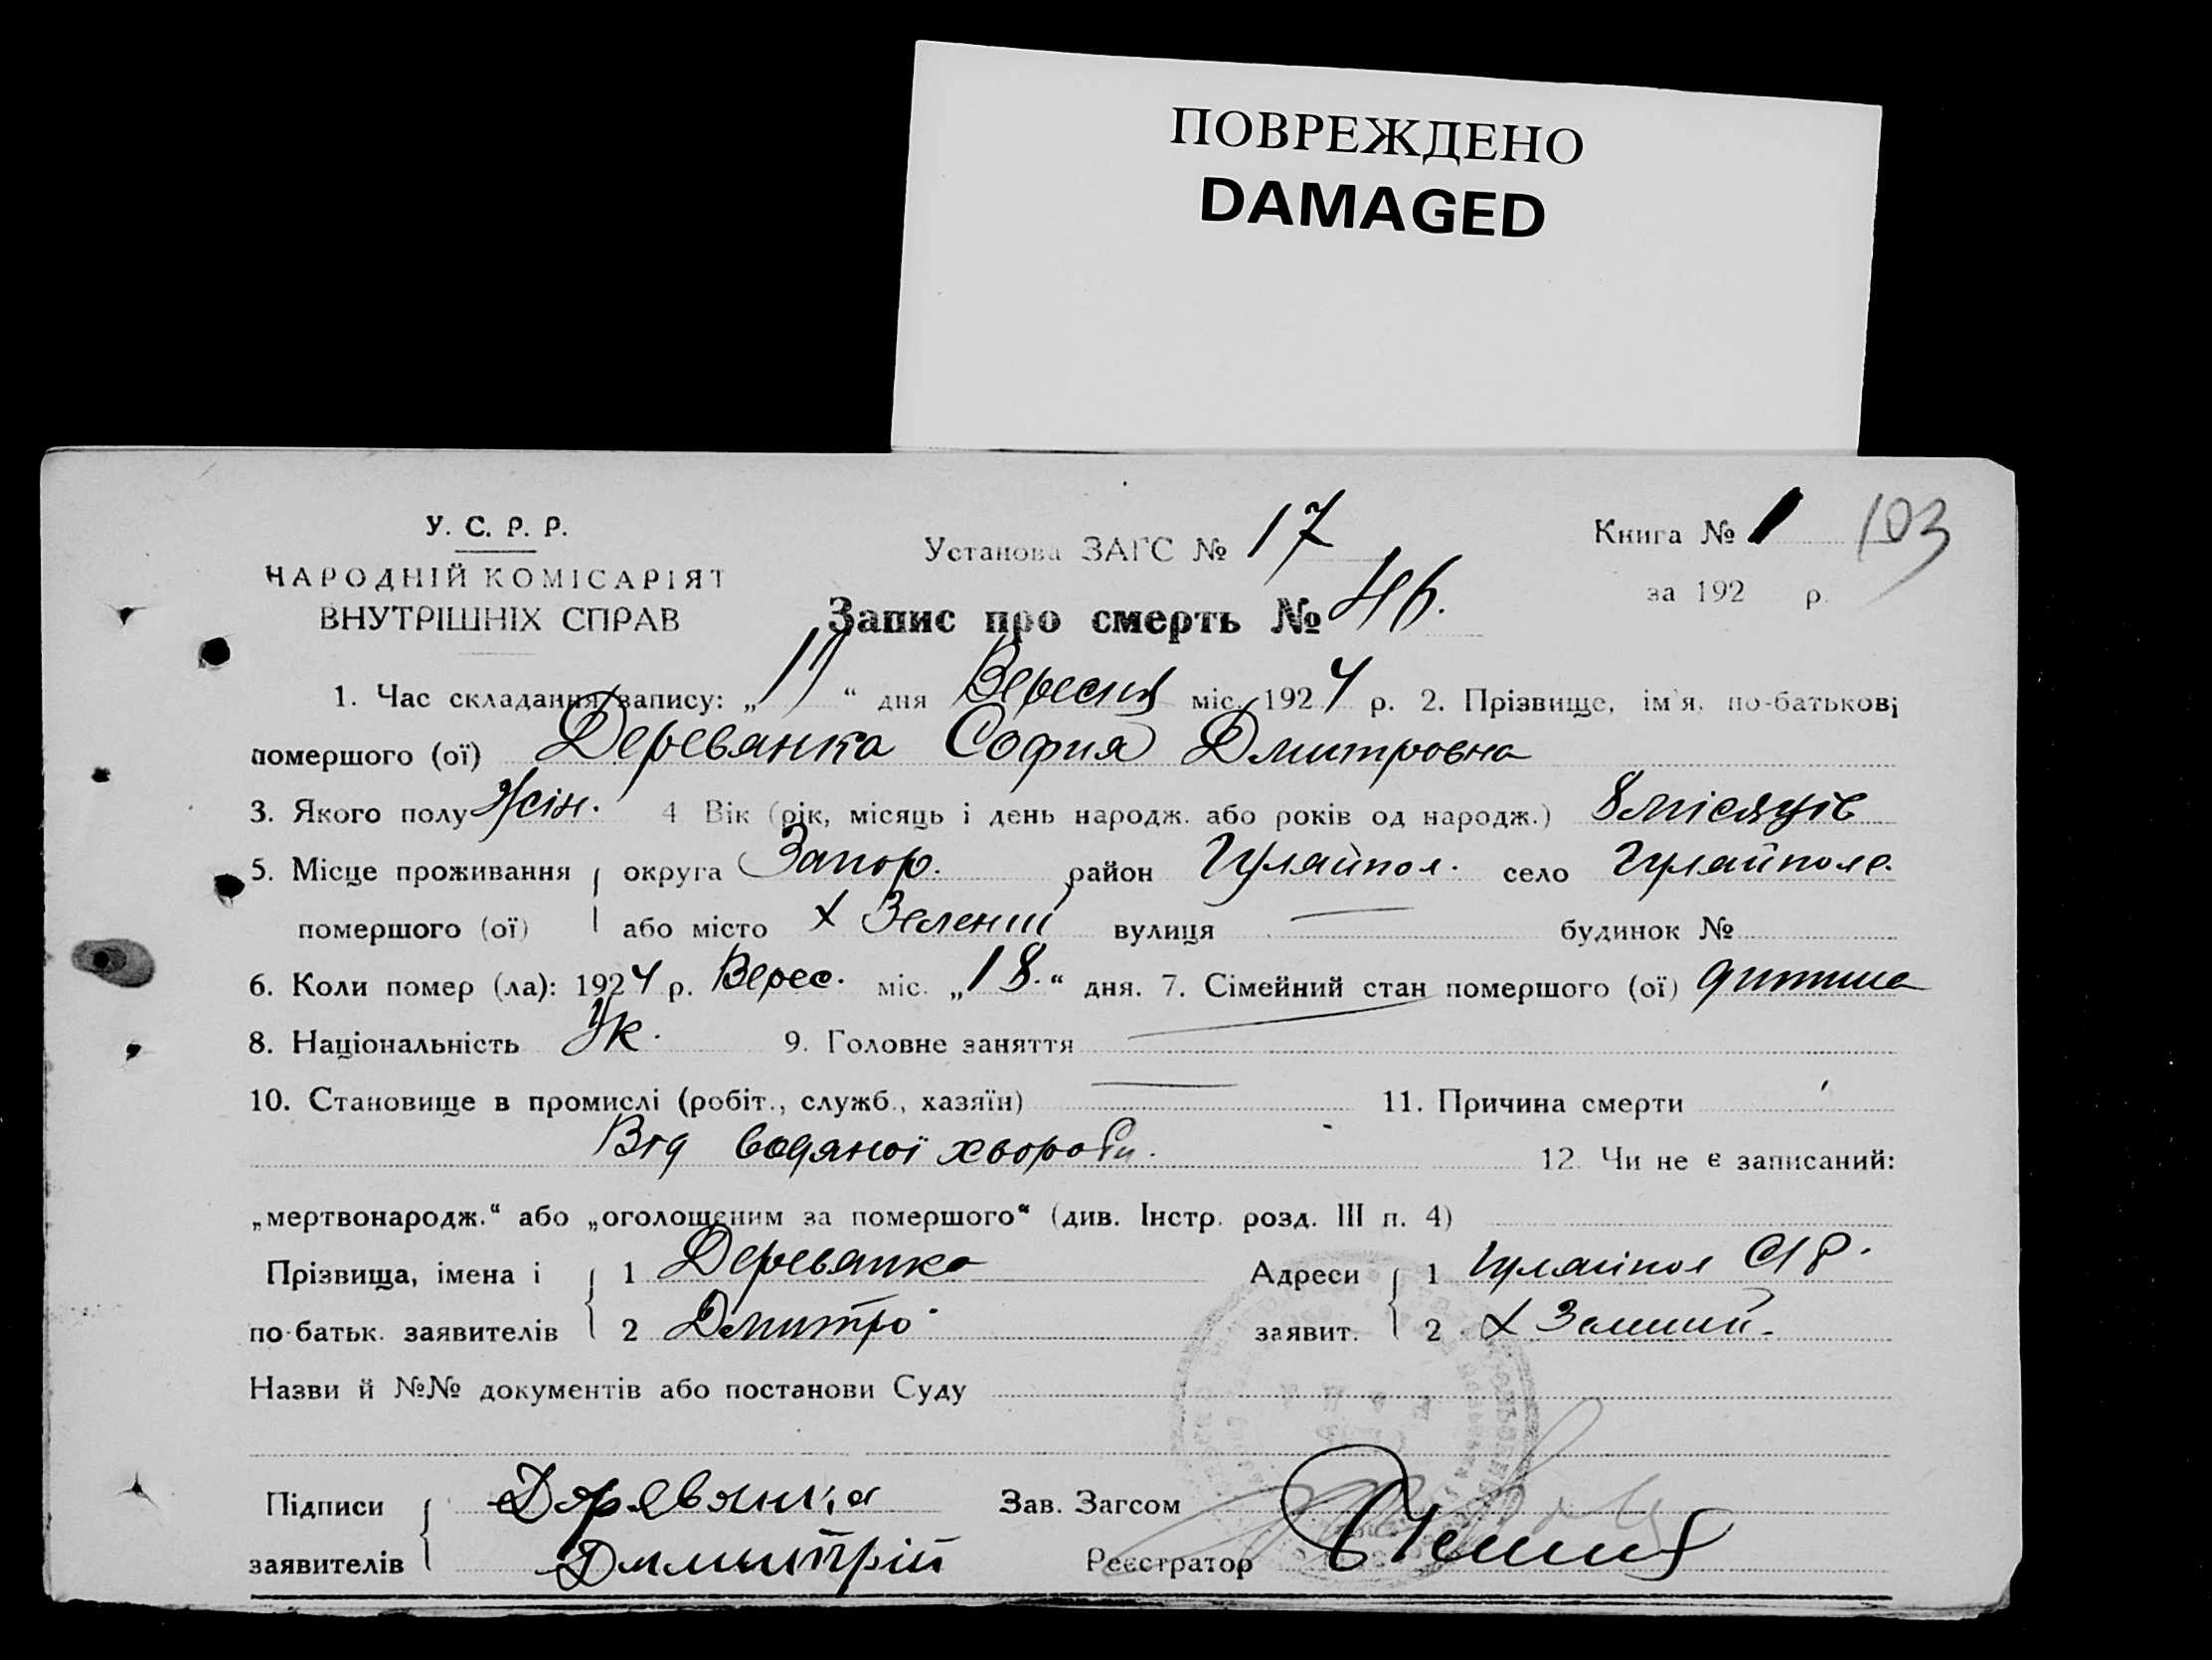 ПОВРЕЖДЕНО
DAMAGED
У. С. Р. Р.
НАРОДНІЙ КОМІСАРІЯТ
ВНУТРІШНІХ СПРАВ
Установа ЗАГС № 17
Книга № 1 103
за 192 р.
Запис про смерть № 46.
1. Час складання запису: „ “ дня Вересня міс. 1924 р. 2. Прізвище, ім'я, по-батькові
помершого (ої) Деревянка София Дмитровна
3. Якого полу Жін. 4 Вік (рік, місяць і день народж. або років од народж.) 8 місяців
5. Місце проживання округа Запор. район Гуляйпол. село Гуляйполе.
помершого (ої) або місто х Зелений вулиця — будинок №
6. Коли помер (ла): 1924 р. Верес. міс. „18.“ дня. 7. Сімейний стан помершого (ої) дитина
8. Національність Ук. 9. Головне заняття —
10. Становище в промислі (робіт., служб., хазяїн) — 11. Причина смерти
Від водяної хвороби.
12. Чи не є записаний:
„мертвонародж.“ або „оголошеним за помершого“ (див. Інстр. розд. III п. 4)
Прізвища, імена і 1 Деревянко Адреси 1 Гуляйпол
по-батьк. заявителів 2 Дмитро заявит. 2 х Зелений.
Назви й №№ документів або постанови Суду
Підписи Деревянка Зав. Загсом
заявителів Дмитрій Реєстратор